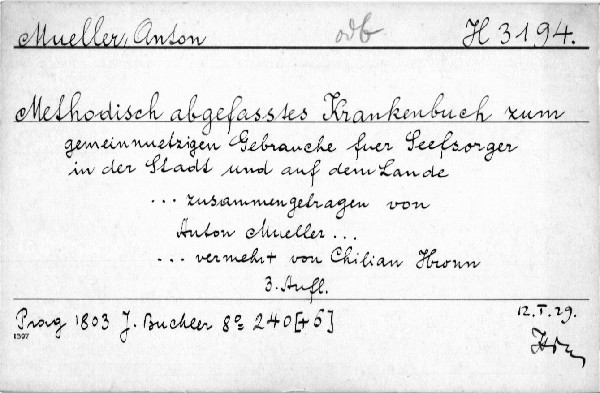 Mueller, Anton odb H 3194.
Methodisch abgefasstes Krankenbuch zum
gemeinnuetzigen Gebrauche fuer Seelsorger
in der Stadt und auf dem Lande
... zusammengetragen von
Anton Mueller ...
... vermehrt von Chilian Hronn
3. Aufl.
Prag 1803 J. Buchler 8º 240[+6] 12.I.29.
1397